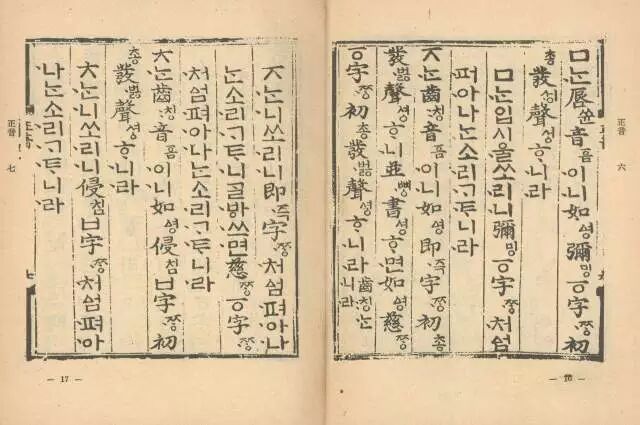 正音 六
ㅁᄂᆞᆫ脣쓘音ᅙᅳᆷ이니如ᅀᅧᆼ彌밍ㆆ字ᄍᆞᆼ初
총發벓聲셩ᄒᆞ니라
ㅁᄂᆞᆫ입시울쏘리니彌밍ㆆ字ᄍᆞᆼ처ᅀᅥᆷ
펴아나ᄂᆞᆫ소리ᄀᆞᄐᆞ니라
ㅈᄂᆞᆫ齒칭音ᅙᅳᆷ이니如ᅀᅧᆼ即즉字ᄍᆞᆼ初총
發벓聲셩ᄒᆞ니並뼝書셩ᄒᆞ면如ᅀᅧᆼ慈ᄍᆞᆼ
ㆆ字ᄍᆞᆼ初총發벓聲셩ᄒᆞ니라齒칭ᄂᆞᆫ니라
— 16 —
ㅈᄂᆞᆫ니쏘리니即즉字ᄍᆞᆼ처ᅀᅥᆷ펴아나
ᄂᆞᆫ소리ᄀᆞᄐᆞ니ᄀᆞᆯᄫᅡ쓰면慈ᄍᆞᆼㆆ字ᄍᆞᆼ
처ᅀᅥᆷ펴아나ᄂᆞᆫ소리ᄀᆞᄐᆞ니라
ㅊᄂᆞᆫ齒칭音ᅙᅳᆷ이니如ᅀᅧᆼ侵침ㅂ字ᄍᆞᆼ初
총發벓聲셩ᄒᆞ니라
ㅊᄂᆞᆫ니쏘리니侵침ㅂ字ᄍᆞᆼ처ᅀᅥᆷ펴아
나ᄂᆞᆫ소리ᄀᆞᄐᆞ니라
正音 七
— 17 —